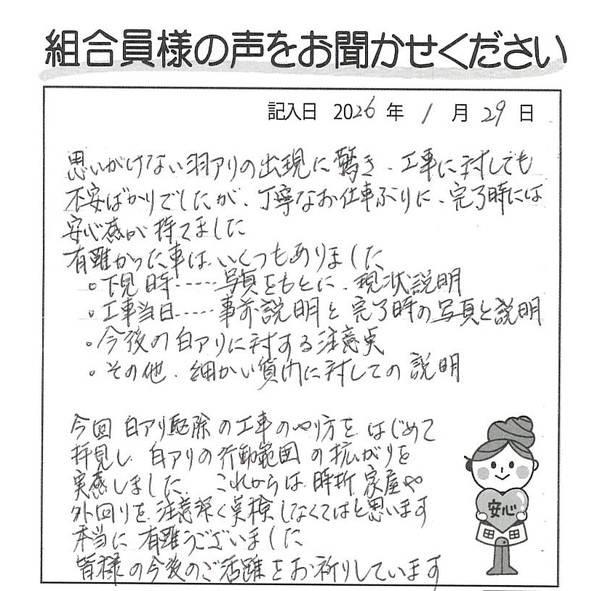 組合員様の声をお聞かせください
記入日 2026年 1月29日
思いがけない羽アリの出現に驚き、工事に対しても
不安ばかりでしたが、丁寧なお仕事ぶりに、完了時には
安心感が持てました
有難かった事は、いくつもありました
・下見時・・・・・写真をもとに、現状説明
・工事当日・・・・・事前説明と完了時の写真と説明
・今後の白アリに対する注意点
・その他、細かい質問に対しての説明
今回 白アリ駆除の工事のやり方を はじめて
拝見し、白アリの行動範囲の拡がりを
実感しました これからは、時折 家屋や
外回りを注意深く点検しなくてはと思います
本当に 有難うございました
皆様の今後のご活躍をお祈りしています
安心